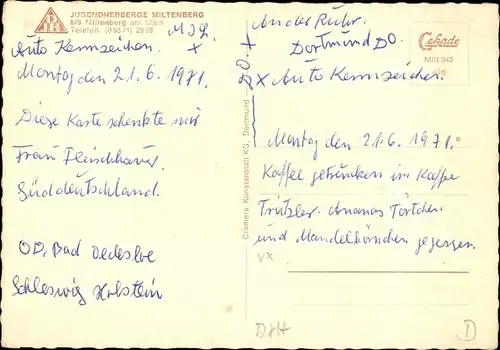 JUGENDHERBERGE MILTENBERG
876 Miltenberg am Main
Telefon (09371) 2889
Auto Kennzeichen.
x
Montag den 21.6.1971.
Diese Karte schenkte mir
Frau Fleischhauer
Süddeutschland.
OD. Bad Oedesloe
Schleswig Holstein
Cramers Kunstanstalt KG, Dortmund
DO. x
An der Ruhr.
Dortmund DO.
x Auto Kennzeichen.
Cekade
Mill 043
Montag den 21.6.1971.
Kaffee getrunken im Kaffe
Trützler. Ananas Törtchen
und Mandelhörnchen gegessen.
vx
DJH
D